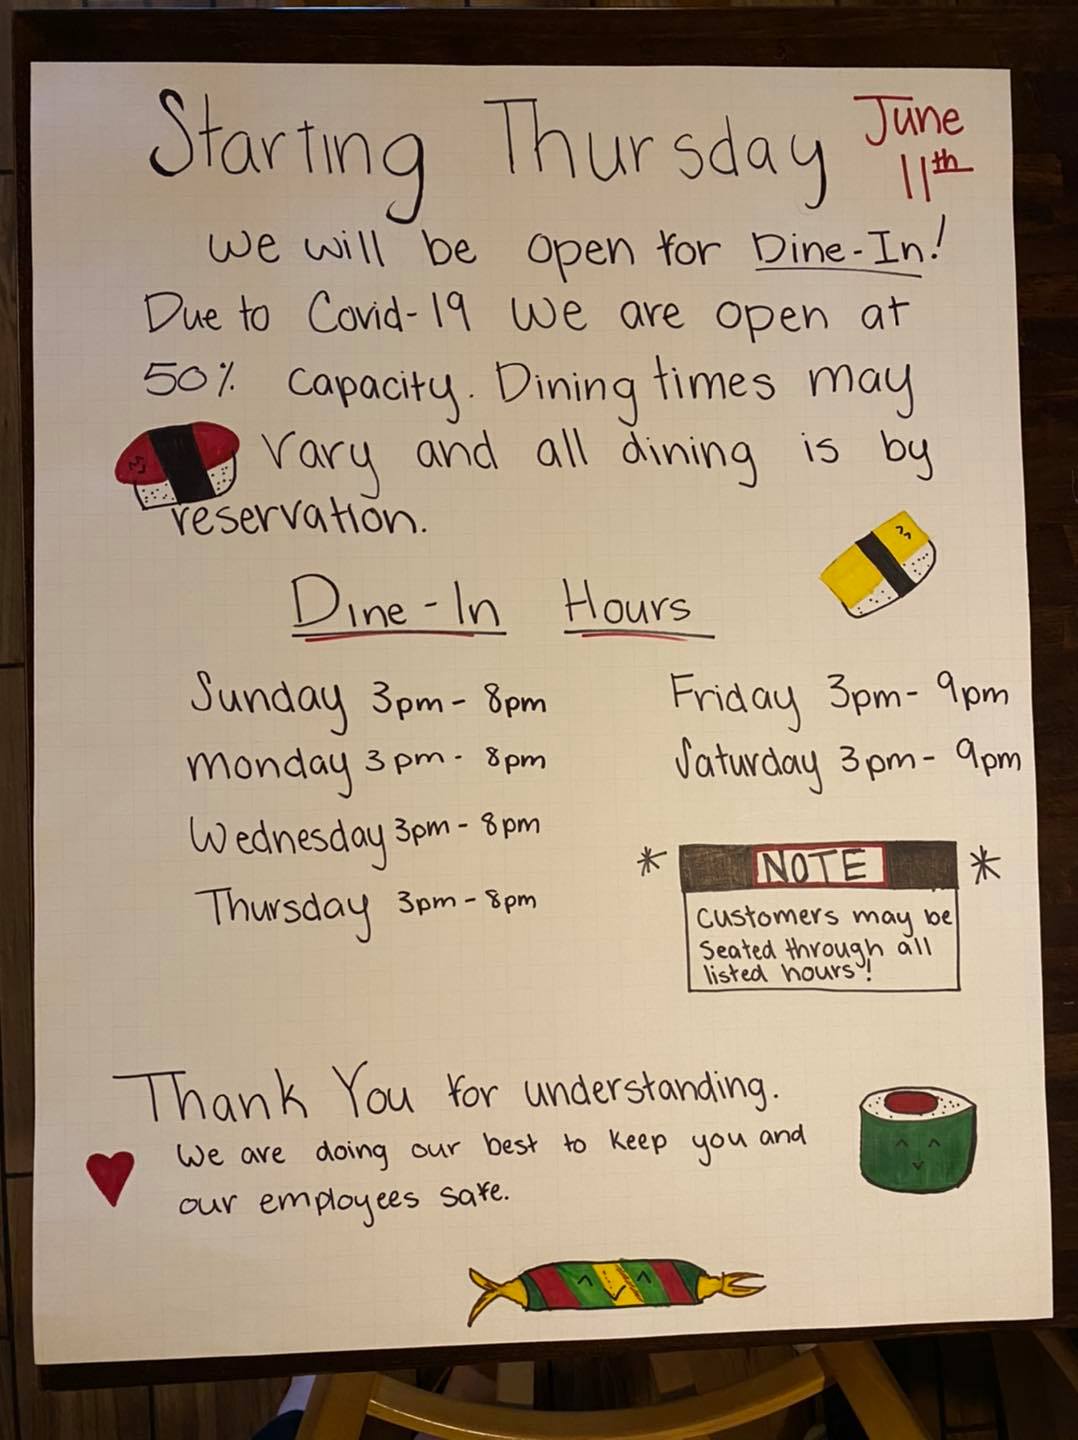 Starting Thursday June 11th
We will be open for Dine-In!
Due to Covid-19 we are open at
50% capacity. Dining times may
vary and all dining is by
reservation.
Dine-In Hours
Sunday 3pm - 8pm
Monday 3pm - 8pm
Wednesday 3pm - 8pm
Thursday 3pm - 8pm
Friday 3pm - 9pm
Saturday 3pm - 9pm
* NOTE *
Customers may be
Seated through all
listed hours!
Thank You for understanding.
We are doing our best to keep you and
our employees safe.